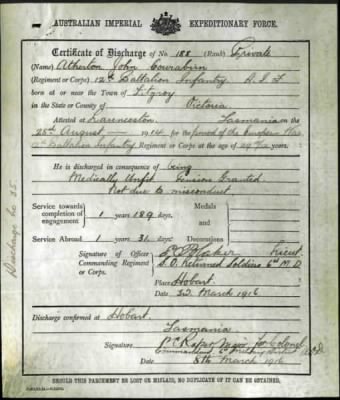 AUSTRALIAN IMPERIAL EXPEDITIONARY FORCE.
Certificate of Discharge of No 188 (Rank) Private
(Name) Atherton John
(Regiment or Corps) 12th Battalion Infantry A.I.F
born at or near the Town of Fitzroy
in the State or County of Victoria
Attested at Launceston Tasmania on the
25th August 1914 for the period of the
Battalion Infantry Regiment or Corps at the age of
He is discharged in consequence of being
Medically Unfit Pension Granted
Not due to misconduct
Service towards completion of engagement 1 years 189 days.
Medals and Decorations
Service Abroad 1 years 31 days.
Signature of Officer Commanding Regiment or Corps. Lieut.
S.O. Returned Soldiers 6th M.D.
Place Hobart
Date March 1916
Discharge confirmed at Hobart.
Tasmania
Signature Major for Colonel
Commanding 6th Military District
Date 8th March 1916
SHOULD THIS PARCHMENT BE LOST OR MISLAID, NO DUPLICATE OF IT CAN BE OBTAINED.
Discharge